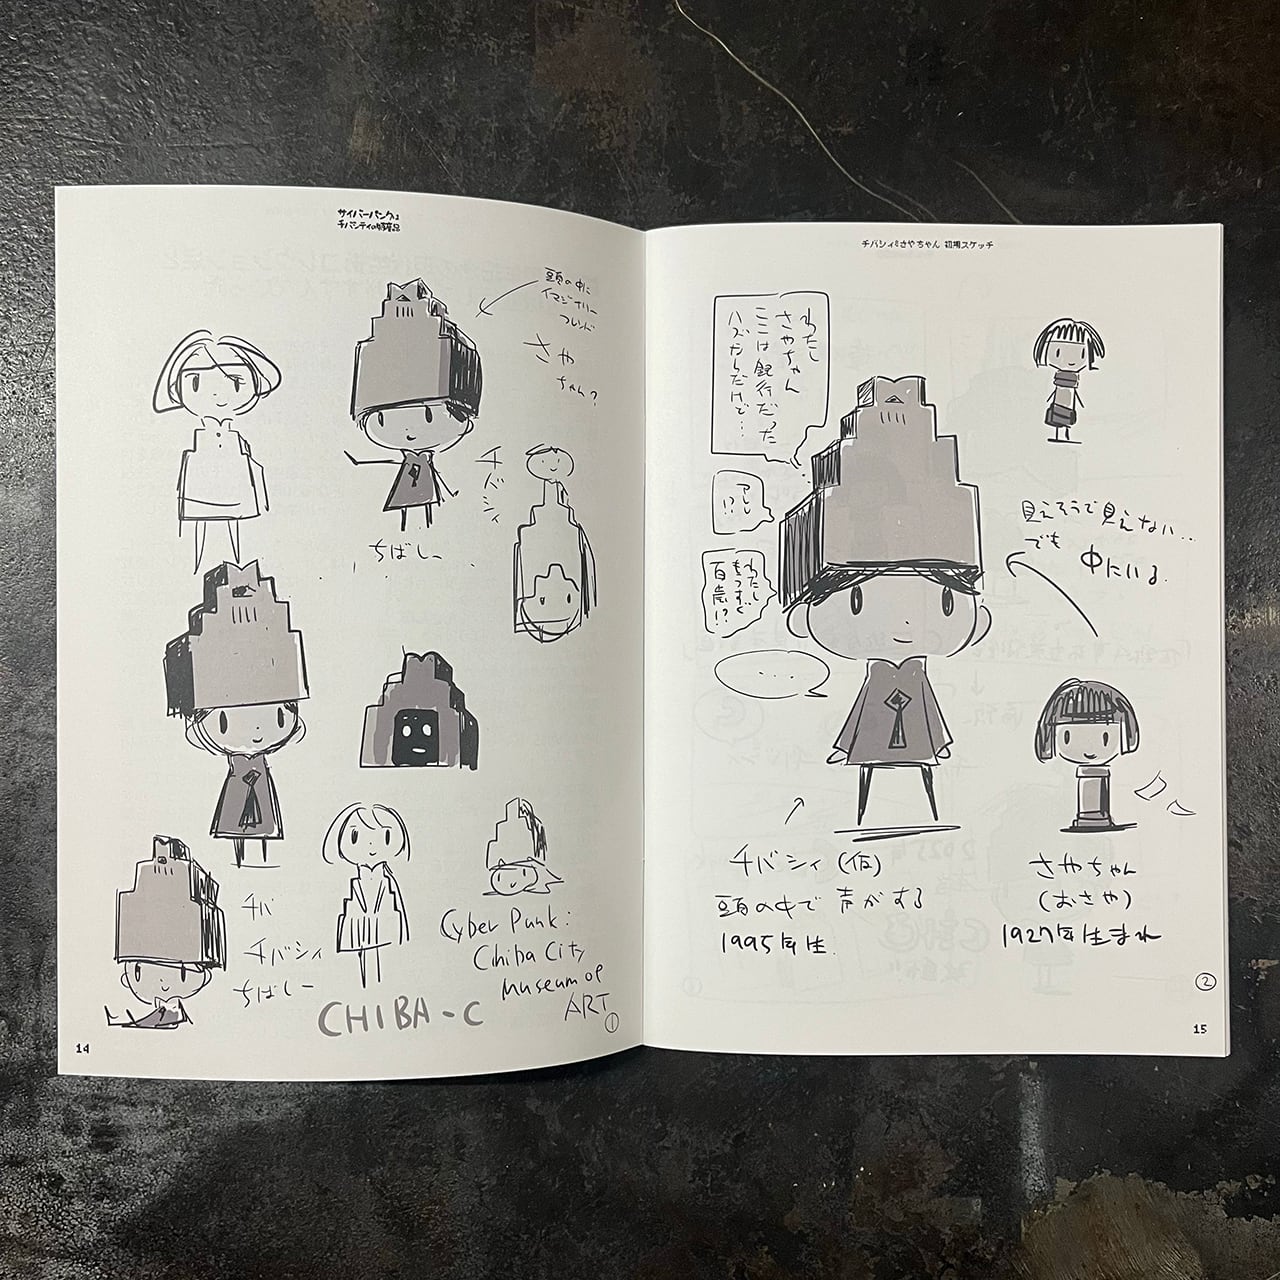 サイバーパンク:
チバシティの収蔵品
頭の中に
イマジナリー
フレンド
さや
ちゃん?
チバシィ
ちばしー
チバ
チバシィ
ちばしー
Cyber Punk:
Chiba City
Museum of
ART
CHIBA-C
①
14
チバシィとさやちゃん 初期スケッチ
わたし
さやちゃん
ここは銀行だった
ハズなんだけど…
アレ
!?
わたし
もうすぐ
百歳!?
・・・
見えそうで見えない..
でも 中にいる
チバシィ (仮)
頭の中で 声がする
1995年生
さやちゃん
(おさや)
1927年生まれ
②
15